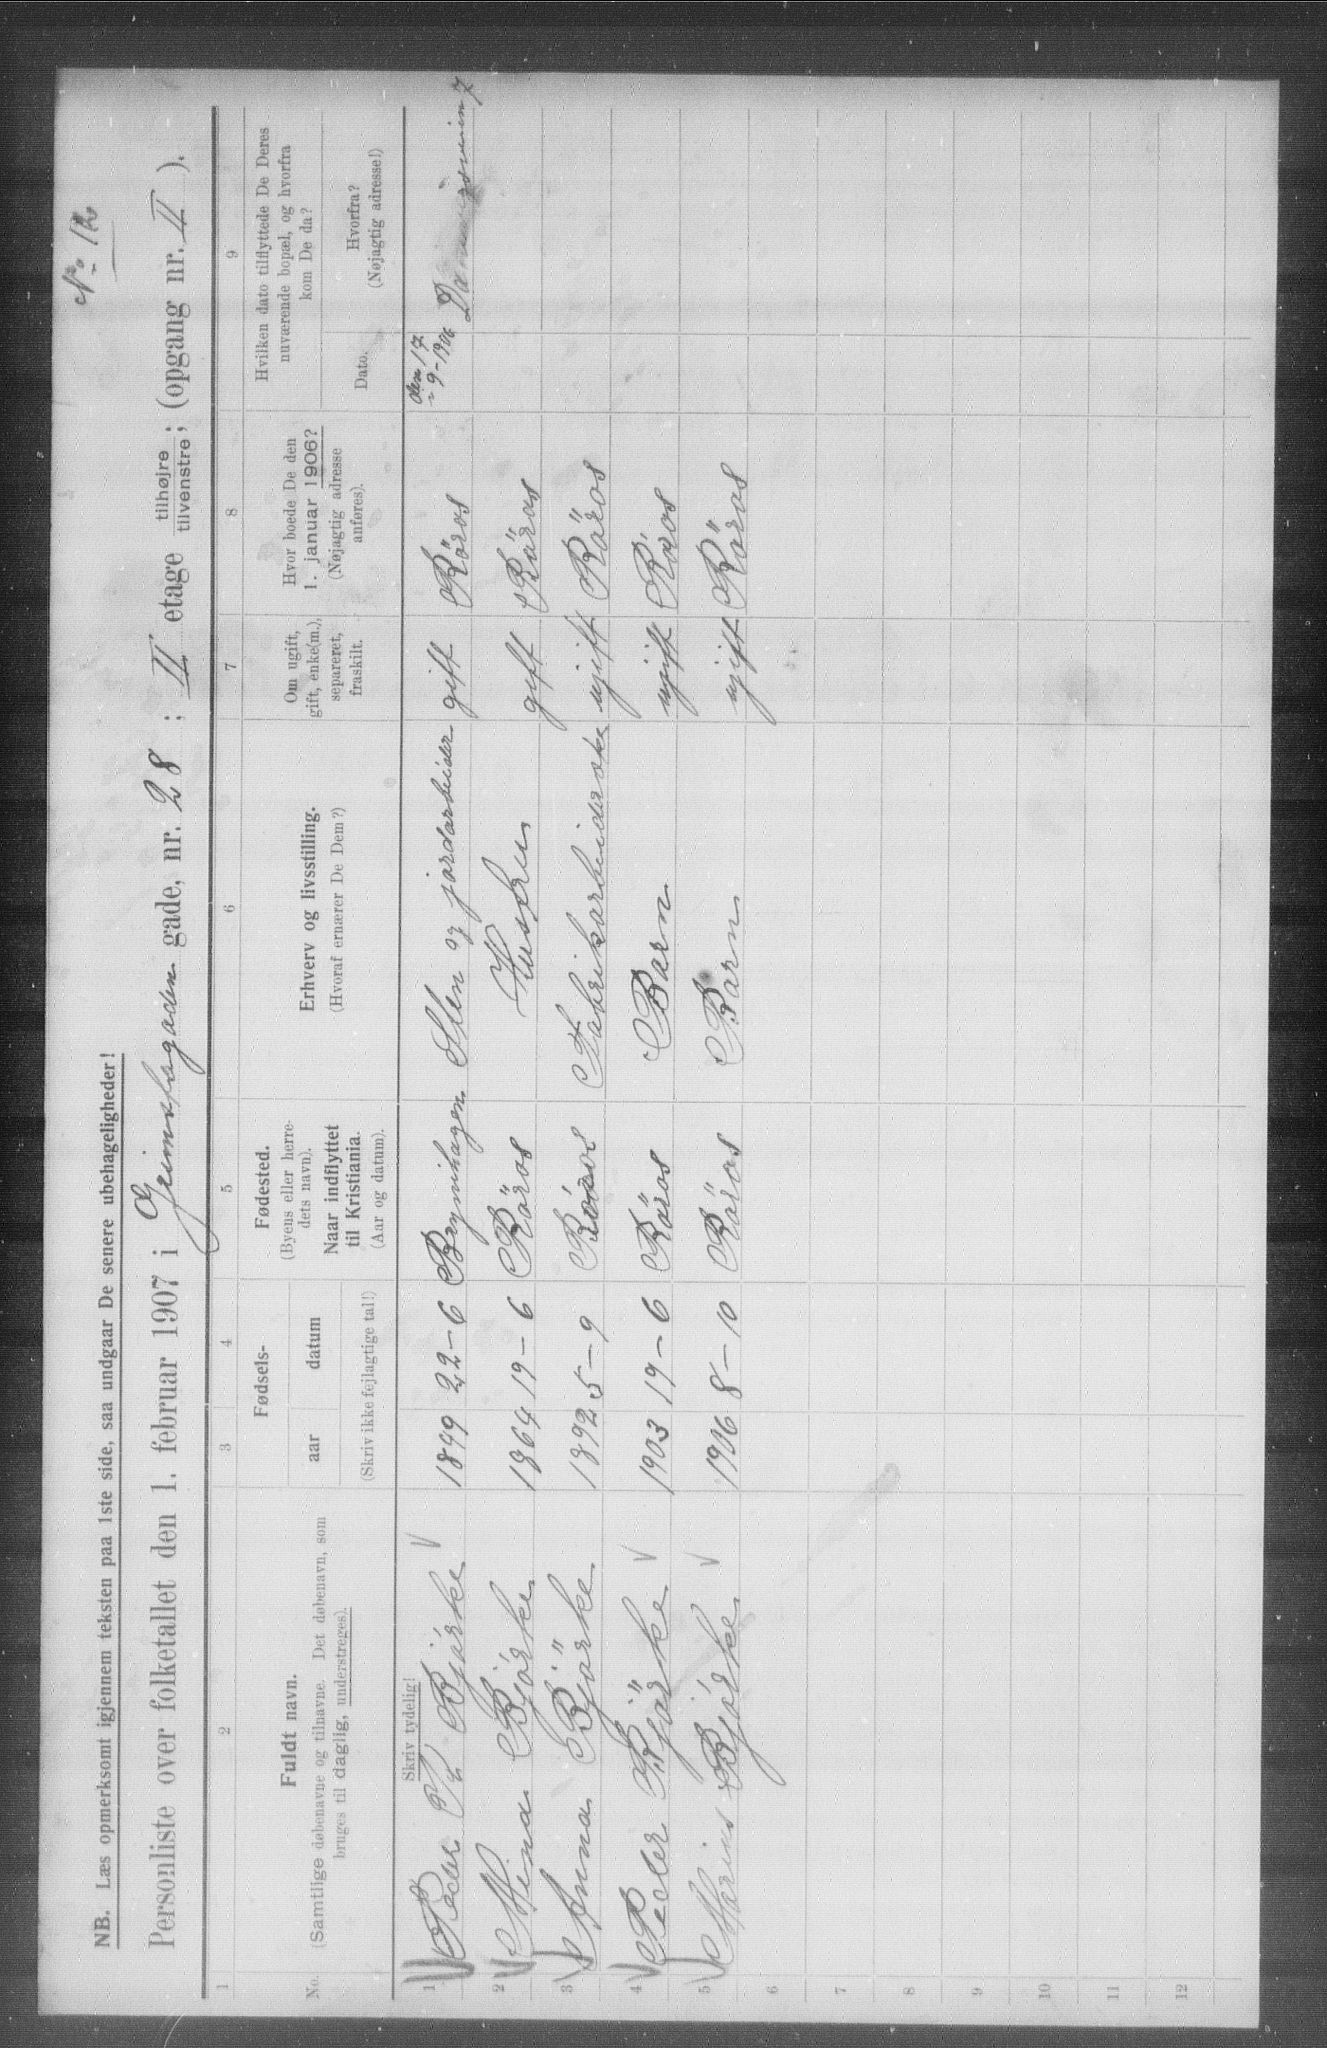 No 12
NB. Læs opmerksomt igjennem teksten paa 1ste side, saa undgaar De senere ubehageligheder!
Personliste over folketallet den 1. februar 1907 i Grimsfagaden gade, nr. 28 ; II etage tilhøjre tilvenstre; (opgang nr. II ).
1 2 3 4 5 6 7 8 9
No.
Fuldt navn.
(Samtlige døbenavne og tilnavne. Det døbenavn, som
bruges til daglig, understreges).
Fødsels-
aar datum
(Skriv ikke fejlagtige tal!)
Fødested.
(Byens eller herre-
dets navn).
Naar indflyttet
til Kristiania.
(Aar og datum).
Erhverv og livsstilling.
(Hvoraf ernærer De Dem?)
Om ugift,
gift, enke(m.),
separeret,
fraskilt.
Hvor boede De den
1. januar 1906?
(Nøjagtig adresse
anføres).
Hvilken dato tilflyttede De Deres
nuværende bopæl, og hvorfra
kom De da?
Dato.
Hvorfra?
(Nøjagtig adresse!)
Skriv tydelig!
1 Peder Bjørke 1849 22-6 Brynihagen Sten og jordarbeider gift Röros den 17 - 9-1906
2 Mina Bjørke 1864 19-6 Röros Husfru gift Röros
3 Anna Bjørke 1892 5-9 Röros Fabrikarbeiderske ugift Röros
4 Peder Bjørke 1903 19-6 Röros Barn ugift Röros
5 Marius Bjørke 1906 8-10 Röros Barn ugift Röros
6
7
8
9
10
11
12